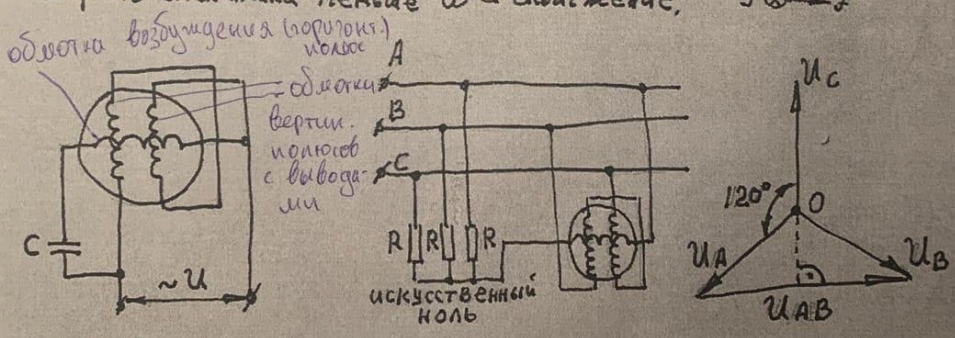 меньше
обмотка возбуждения (горизонт.)
полюс
обмотки
вертик.
полюсов
с вывода-
ми
C
~U
A
B
C
R R R
искусственный
ноль
UC
120°
O
UA
UB
UAB